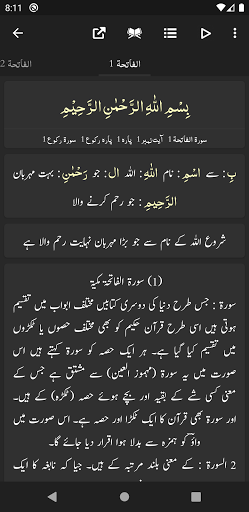 8:11
الفاتحة 1
الفاتحة 2
بِسْمِ اللّٰهِ الرَّحْمٰنِ الرَّحِيْمِ
سورة الفاتحة 1 آیت نمبر 1 پارہ 1 پارہ رکوع 1 سورۃ رکوع 1
بِ: سے اسْمِ: نام اللّٰهِ: اللہ ال: جو رَحْمٰنِ: بہت مہربان
الرَّحِيْمِ: جو رحم کرنے والا
شروع اللہ کے نام سے جو بڑا مہربان نہایت رحم والا ہے
(1) سورۃ الفاتحۃ مکیۃ
1 سورۃ : جس طرح دنیا کی دوسری کتابیں مختلف ابواب میں تقسیم
ہوتی ہیں اسی طرح قرآن حکیم کو بھی مختلف حصوں یا ٹکڑوں
میں تقسیم کیا گیا ہے۔ ہر ایک حصہ کو سورۃ کہتے ہیں اس
صورت میں یہ سورۃ (مہموز العین) سے مشتق ہے جس کے
معنی کسی شے کے بقیہ اور بچے ہوئے حصہ (ٹکڑہ) کے ہیں۔
اور سورۃ بھی قرآن کا ایک حصہ اور ٹکڑا ہے۔ اس صورت میں
واؤ کو ہمزہ سے بدلا ہوا اقرار دیا جائے گا۔
2 السورۃ : کے معنی بلند مرتبہ کے ہیں۔ جیا کہ نابغہ کا ایک